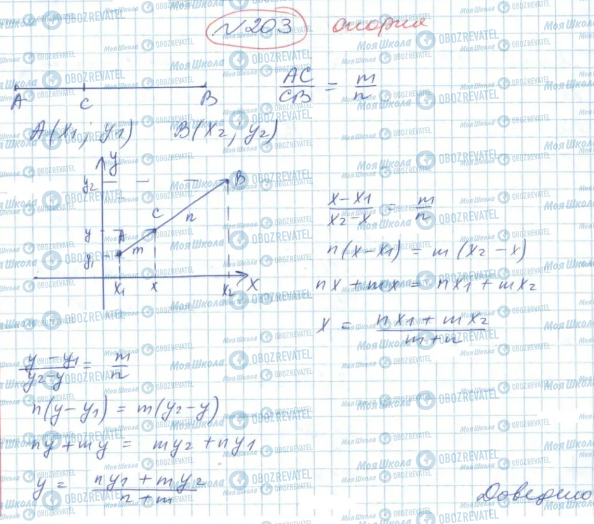 №203
A C B AC/CB = m/n
A(x1, y1) B(x2, y2)
y
y2 B
C n
y A
m
y1
x1 x x2 X
(x-x1)/(x2-x) = m/n
n(x-x1) = m(x2-x)
nx+mx = nx1+mx2
x = (nx1+mx2)/(m+n)
(y-y1)/(y2-y) = m/n
n(y-y1) = m(y2-y)
ny+my = my2+ny1
y = (ny1+my2)/(n+m)
Доведено
Моя Школа
OBOZREVATEL